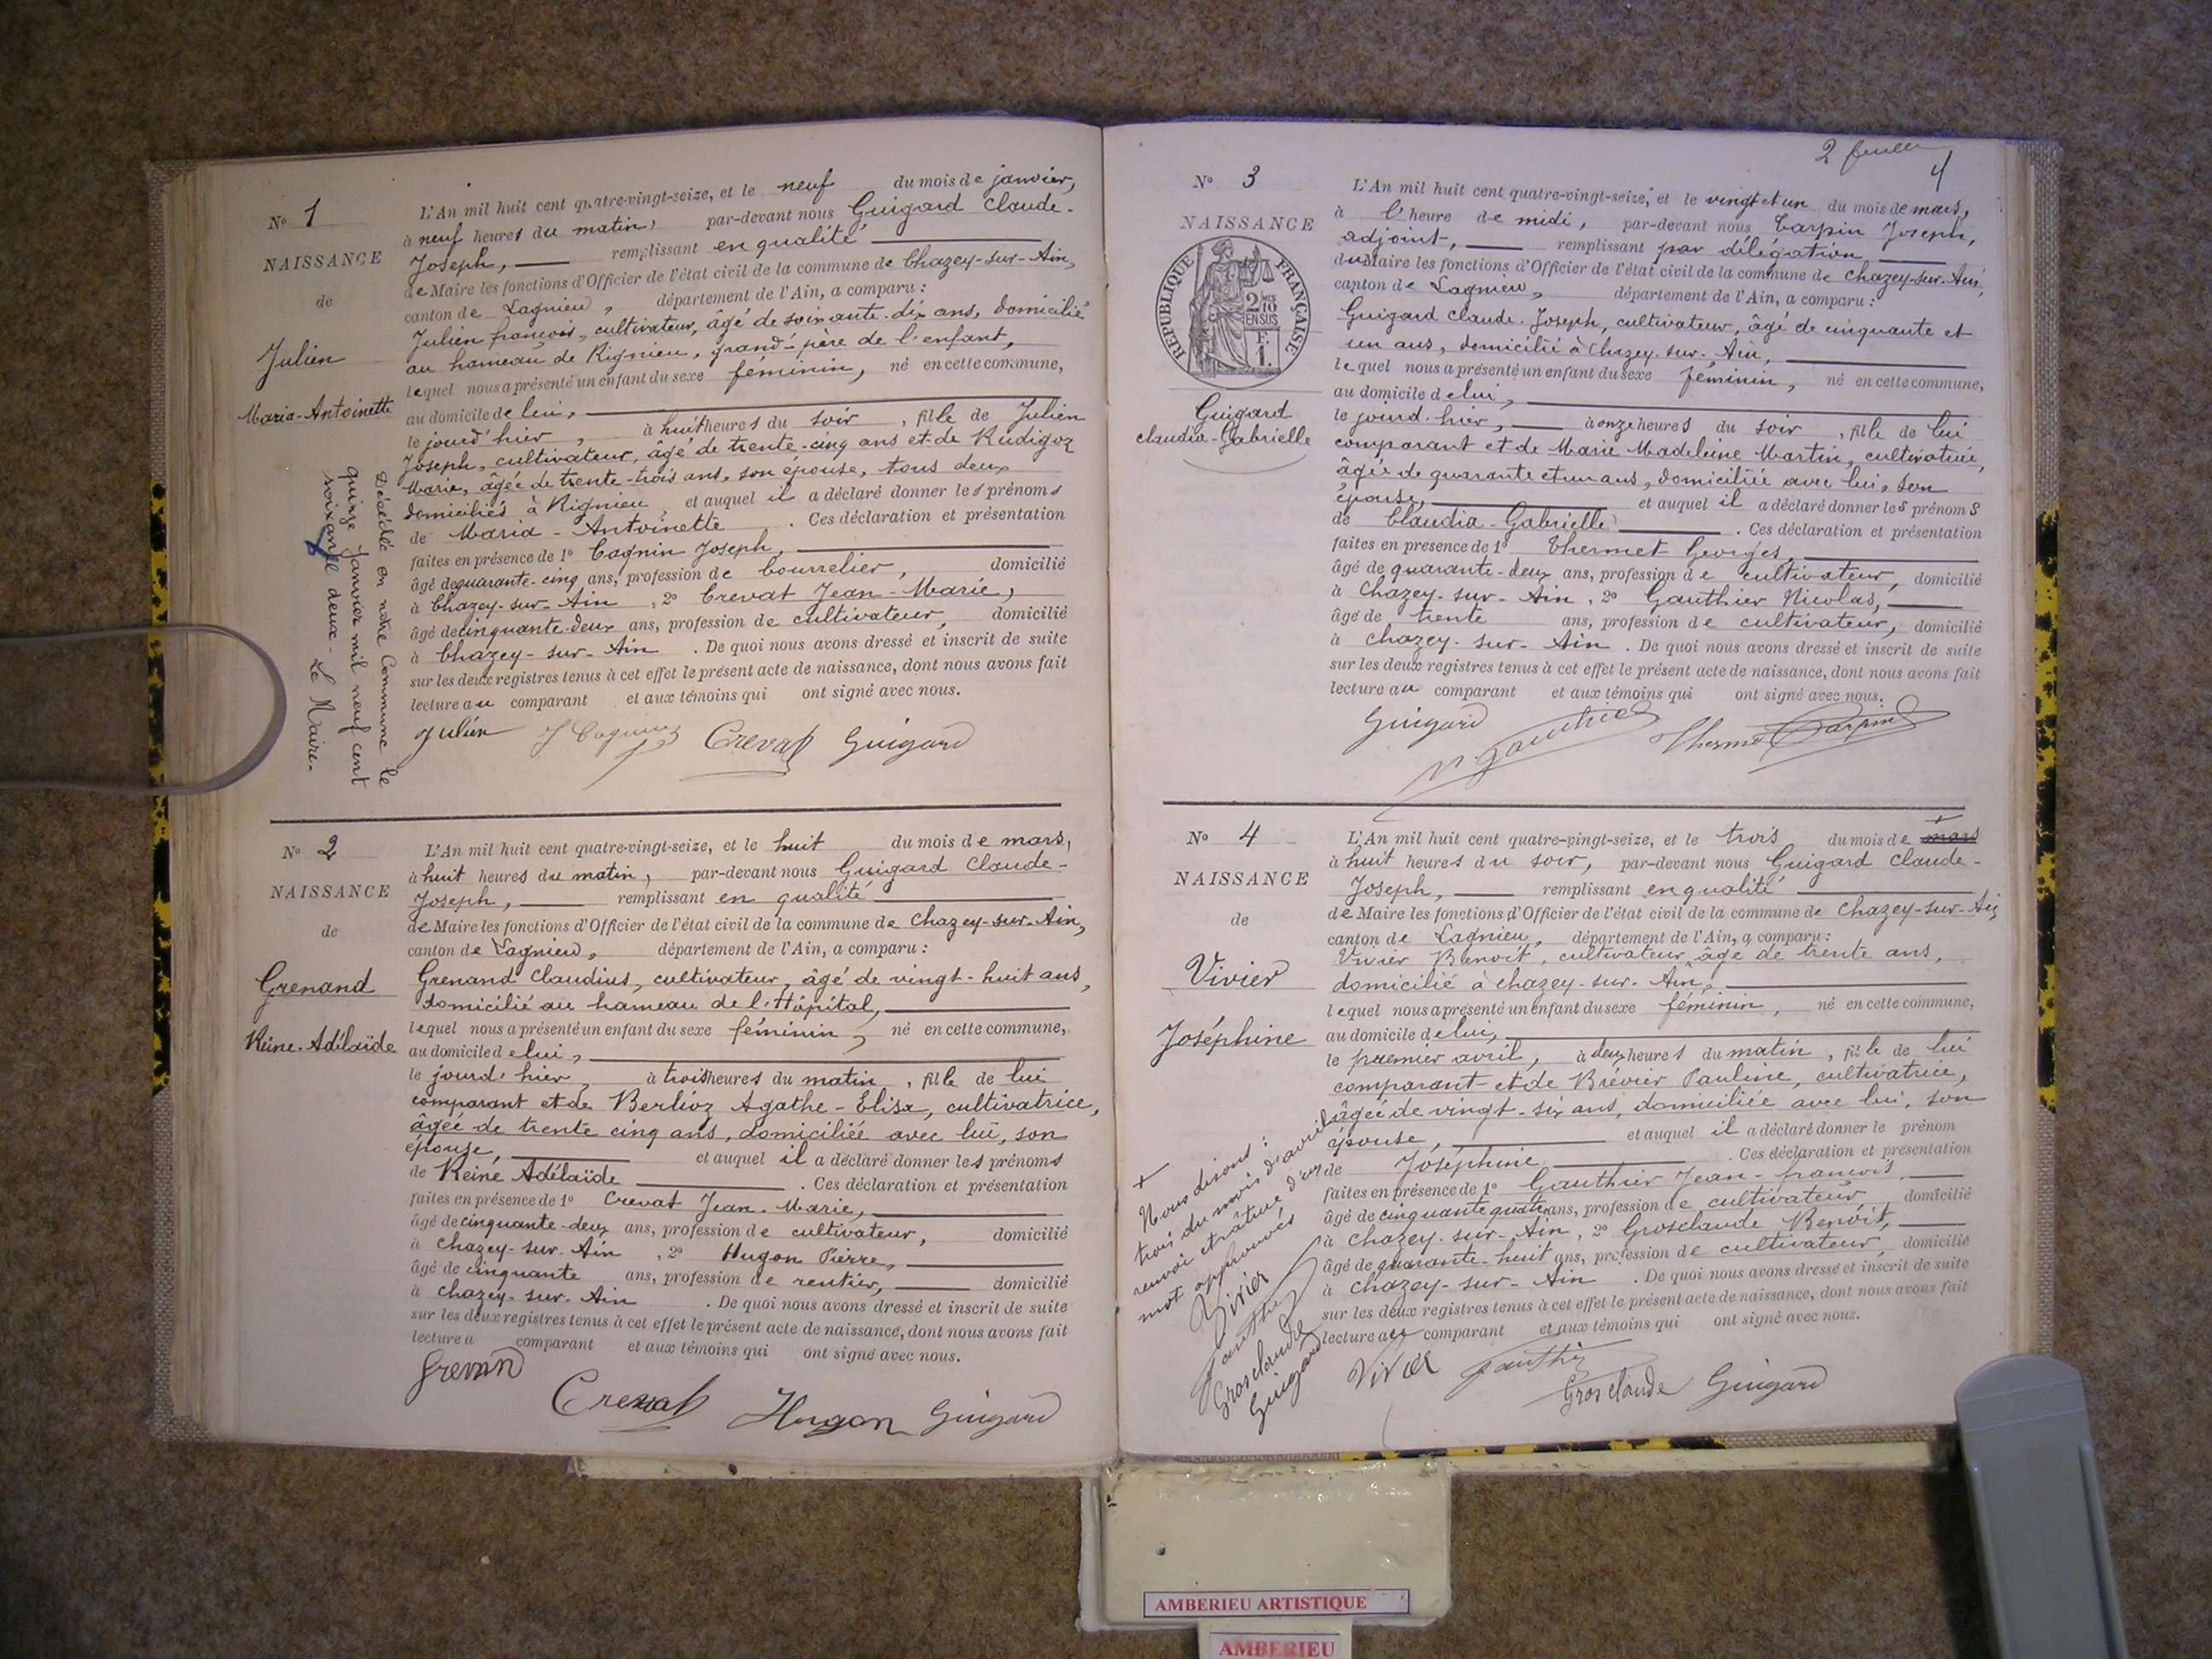 N° 1
NAISSANCE
de
Julien
Maria-Antoinette
Décédée en notre Commune le
quinze Janvier mil neuf cent
soixante deux - Le Maire.
L'An mil huit cent quatre-vingt-seize, et le neuf du mois de janvier,
à neuf heures du matin, par-devant nous Guigard Claude-
Joseph, remplissant en qualité
de Maire les fonctions d'Officier de l'état civil de la commune de Chazey-sur-Ain,
canton de Lagnieu, département de l'Ain, a comparu :
Julien françois, cultivateur, âgé de soixante-dix ans, domicilié
au hameau de Rignieu, grand-père de l'enfant,
lequel nous a présenté un enfant du sexe féminin, né en cette commune,
au domicile de lui,
le jourd'hier, à huit heures du soir, fille de Julien
Joseph, cultivateur, âgé de trente-cinq ans et de Rudigoz
Marie, âgée de trente-trois ans, son épouse, tous deux
domiciliés à Rignieu, et auquel il a déclaré donner les prénoms
de Maria-Antoinette. Ces déclaration et présentation
faites en présence de 1° Cagnin Joseph,
âgé de quarante-cinq ans, profession de bourrelier, domicilié
à Chazey-sur-Ain, 2° Crevat Jean-Marie,
âgé de cinquante-deux ans, profession de cultivateur, domicilié
à Chazey-sur-Ain. De quoi nous avons dressé et inscrit de suite
sur les deux registres tenus à cet effet le présent acte de naissance, dont nous avons fait
lecture au comparant et aux témoins qui ont signé avec nous.
Julien J Cagnin Crevat Guigard
N° 2
NAISSANCE
de
Grenand
Reine-Adélaïde
L'An mil huit cent quatre-vingt-seize, et le huit du mois de mars,
à huit heures du matin, par-devant nous Guigard Claude-
Joseph, remplissant en qualité
de Maire les fonctions d'Officier de l'état civil de la commune de Chazey-sur-Ain,
canton de Lagnieu, département de l'Ain, a comparu :
Grenand Claudius, cultivateur, âgé de vingt-huit ans,
domicilié au hameau de l'Hôpital,
lequel nous a présenté un enfant du sexe féminin, né en cette commune,
au domicile de lui,
le jourd'hier, à trois heures du matin, fille de lui
comparant et de Berlioz Agathe-Elisa, cultivatrice,
âgée de trente cinq ans, domiciliée avec lui, son
épouse, et auquel il a déclaré donner les prénoms
de Reine Adélaïde. Ces déclaration et présentation
faites en présence de 1° Crevat Jean-Marie,
âgé de cinquante-deux ans, profession de cultivateur, domicilié
à Chazey-sur-Ain, 2° Hugon Pierre,
âgé de cinquante ans, profession de rentier, domicilié
à Chazey-sur-Ain. De quoi nous avons dressé et inscrit de suite
sur les deux registres tenus à cet effet le présent acte de naissance, dont nous avons fait
lecture a comparant et aux témoins qui ont signé avec nous.
Grenand
Crevat Hugon Guigard
2 feuille
4
N° 3
NAISSANCE
RÉPUBLIQUE FRANÇAISE
2/10 EN SUS
F. 1.
Guigard
Claudia-Gabrielle
L'An mil huit cent quatre-vingt-seize, et le vingt et un du mois de mars,
à l'heure de midi, par-devant nous Carpin Joseph,
adjoint, remplissant par délégation
du Maire les fonctions d'Officier de l'état civil de la commune de Chazey-sur-Ain,
canton de Lagnieu, département de l'Ain, a comparu :
Guigard Claude-Joseph, cultivateur, âgé de cinquante et
un ans, domicilié à Chazey-sur-Ain,
lequel nous a présenté un enfant du sexe féminin, né en cette commune,
au domicile de lui,
le jourd'hier, à onze heures du soir, fille de lui
comparant et de Marie Madeleine Martin, cultivatrice,
âgée de quarante et un ans, domiciliée avec lui, son
épouse, et auquel il a déclaré donner les prénoms
de Claudia-Gabrielle. Ces déclaration et présentation
faites en présence de 1° Thermet Georges,
âgé de quarante-deux ans, profession de cultivateur, domicilié
à Chazey-sur-Ain, 2° Gauthier Nicolas,
âgé de trente ans, profession de cultivateur, domicilié
à Chazey-sur-Ain. De quoi nous avons dressé et inscrit de suite
sur les deux registres tenus à cet effet le présent acte de naissance, dont nous avons fait
lecture au comparant et aux témoins qui ont signé avec nous.
Guigard N. Gauthier Thermet Carpin
N° 4
NAISSANCE
de
Vivier
Joséphine
L'An mil huit cent quatre-vingt-seize, et le trois du mois de mars +
à huit heures du soir, par-devant nous Guigard Claude-
Joseph, remplissant en qualité
de Maire les fonctions d'Officier de l'état civil de la commune de Chazey-sur-Ain
canton de Lagnieu, département de l'Ain, a comparu :
Vivier Benoît, cultivateur âgé de trente ans,
domicilié à Chazey-sur-Ain,
lequel nous a présenté un enfant du sexe féminin, né en cette commune,
au domicile de lui,
le premier avril, à deux heures du matin, fille de lui
comparant et de Brévier Pauline, cultivatrice,
âgée de vingt-six ans, domiciliée avec lui, son
épouse, et auquel il a déclaré donner le prénom
de Joséphine. Ces déclaration et présentation
faites en présence de 1° Gauthier Jean-françois,
âgé de cinquante quatre ans, profession de cultivateur, domicilié
à Chazey-sur-Ain, 2° Grosclaude Benoît,
âgé de quarante-huit ans, profession de cultivateur, domicilié
à Chazey-sur-Ain. De quoi nous avons dressé et inscrit de suite
sur les deux registres tenus à cet effet le présent acte de naissance, dont nous avons fait
lecture au comparant et aux témoins qui ont signé avec nous.
Vivier Gauthier Grosclaude Guigard
+
Nous disons :
trois du mois d'avril
renvoi et rature d'un
mot approuvés
Vivier
Gauthier
Grosclaude
Guigard
AMBERIEU ARTISTIQUE
AMBERIEU